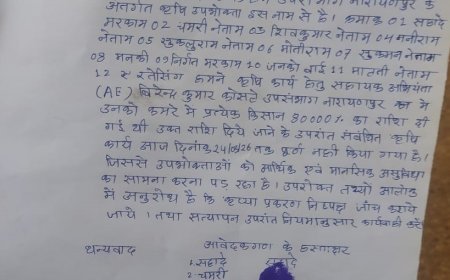 अंतर्गत कृषि उपभोक्ता इस नाम से है। क्रमांक 01 सहादे
मरकाम 02 चमरी नेताम 03 शिवकुमार नेताम 04 मनीराम
नेताम 05 सुकलुराम नेताम 06 मोतीराम 07 सुकमन नेताम
08 मनकी 09 निर्गत मरकाम 10 जनको बाई 11 मालती नेताम
12 रतेसिंग कमने कृषि कार्य हेतु सहायक अभियंता
(AE) कुमार कोसले उपसंभाग नारायणपुर
उनको कमरे में प्रत्येक किसान 80000% का राशि दी
गई थी उक्त राशि दिये जाने के उपरांत संबंधित कृषि
कार्य आज दिनांक 24/02/26 तक पूर्ण नहीं किया गया है।
जिससे उपभोक्ताओं को आर्थिक एवं मानसिक असुविधा
का सामना करना पड़ रहा है। उपरोक्त तथ्यों आलोक
में अनुरोध है कि कृप्या प्रकरण निष्पक्ष जाँच कराये
जाये। तथा सत्यापन उपरांत नियमानुसार कार्यवाही करें
धन्यवाद आवेदकगण के हस्ताक्षर
1. सहादे सहादे
2. चमरी